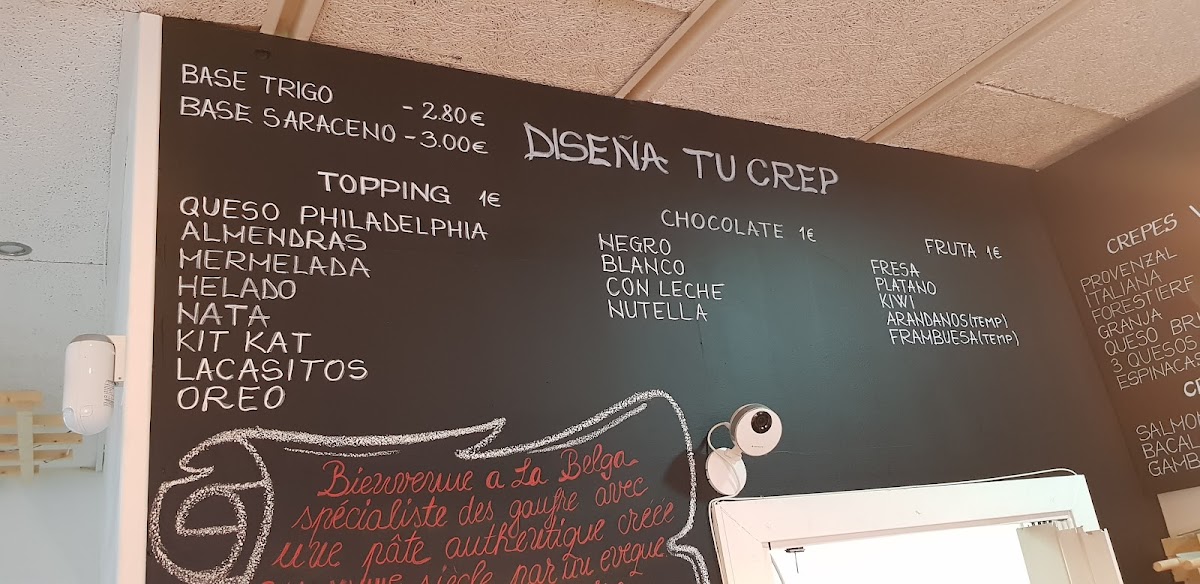 BASE TRIGO - 2.80€
BASE SARACENO - 3.00€
DISEÑA TU CREP
TOPPING 1€
QUESO PHILADELPHIA
ALMENDRAS
MERMELADA
HELADO
NATA
KIT KAT
LACASITOS
OREO
CHOCOLATE 1€
NEGRO
BLANCO
CON LECHE
NUTELLA
FRUTA 1€
FRESA
PLATANO
KIWI
ARANDANOS(TEMP)
FRAMBUESA(TEMP)
CREPES
PROVENZAL
ITALIANA
FORESTIERE
GRANJA
QUESO
3 QUESOS
ESPINACAS
Bienvenue a La Belga
spécialiste des gaufre avec
une pâte authentique créée
siècle par un eveque